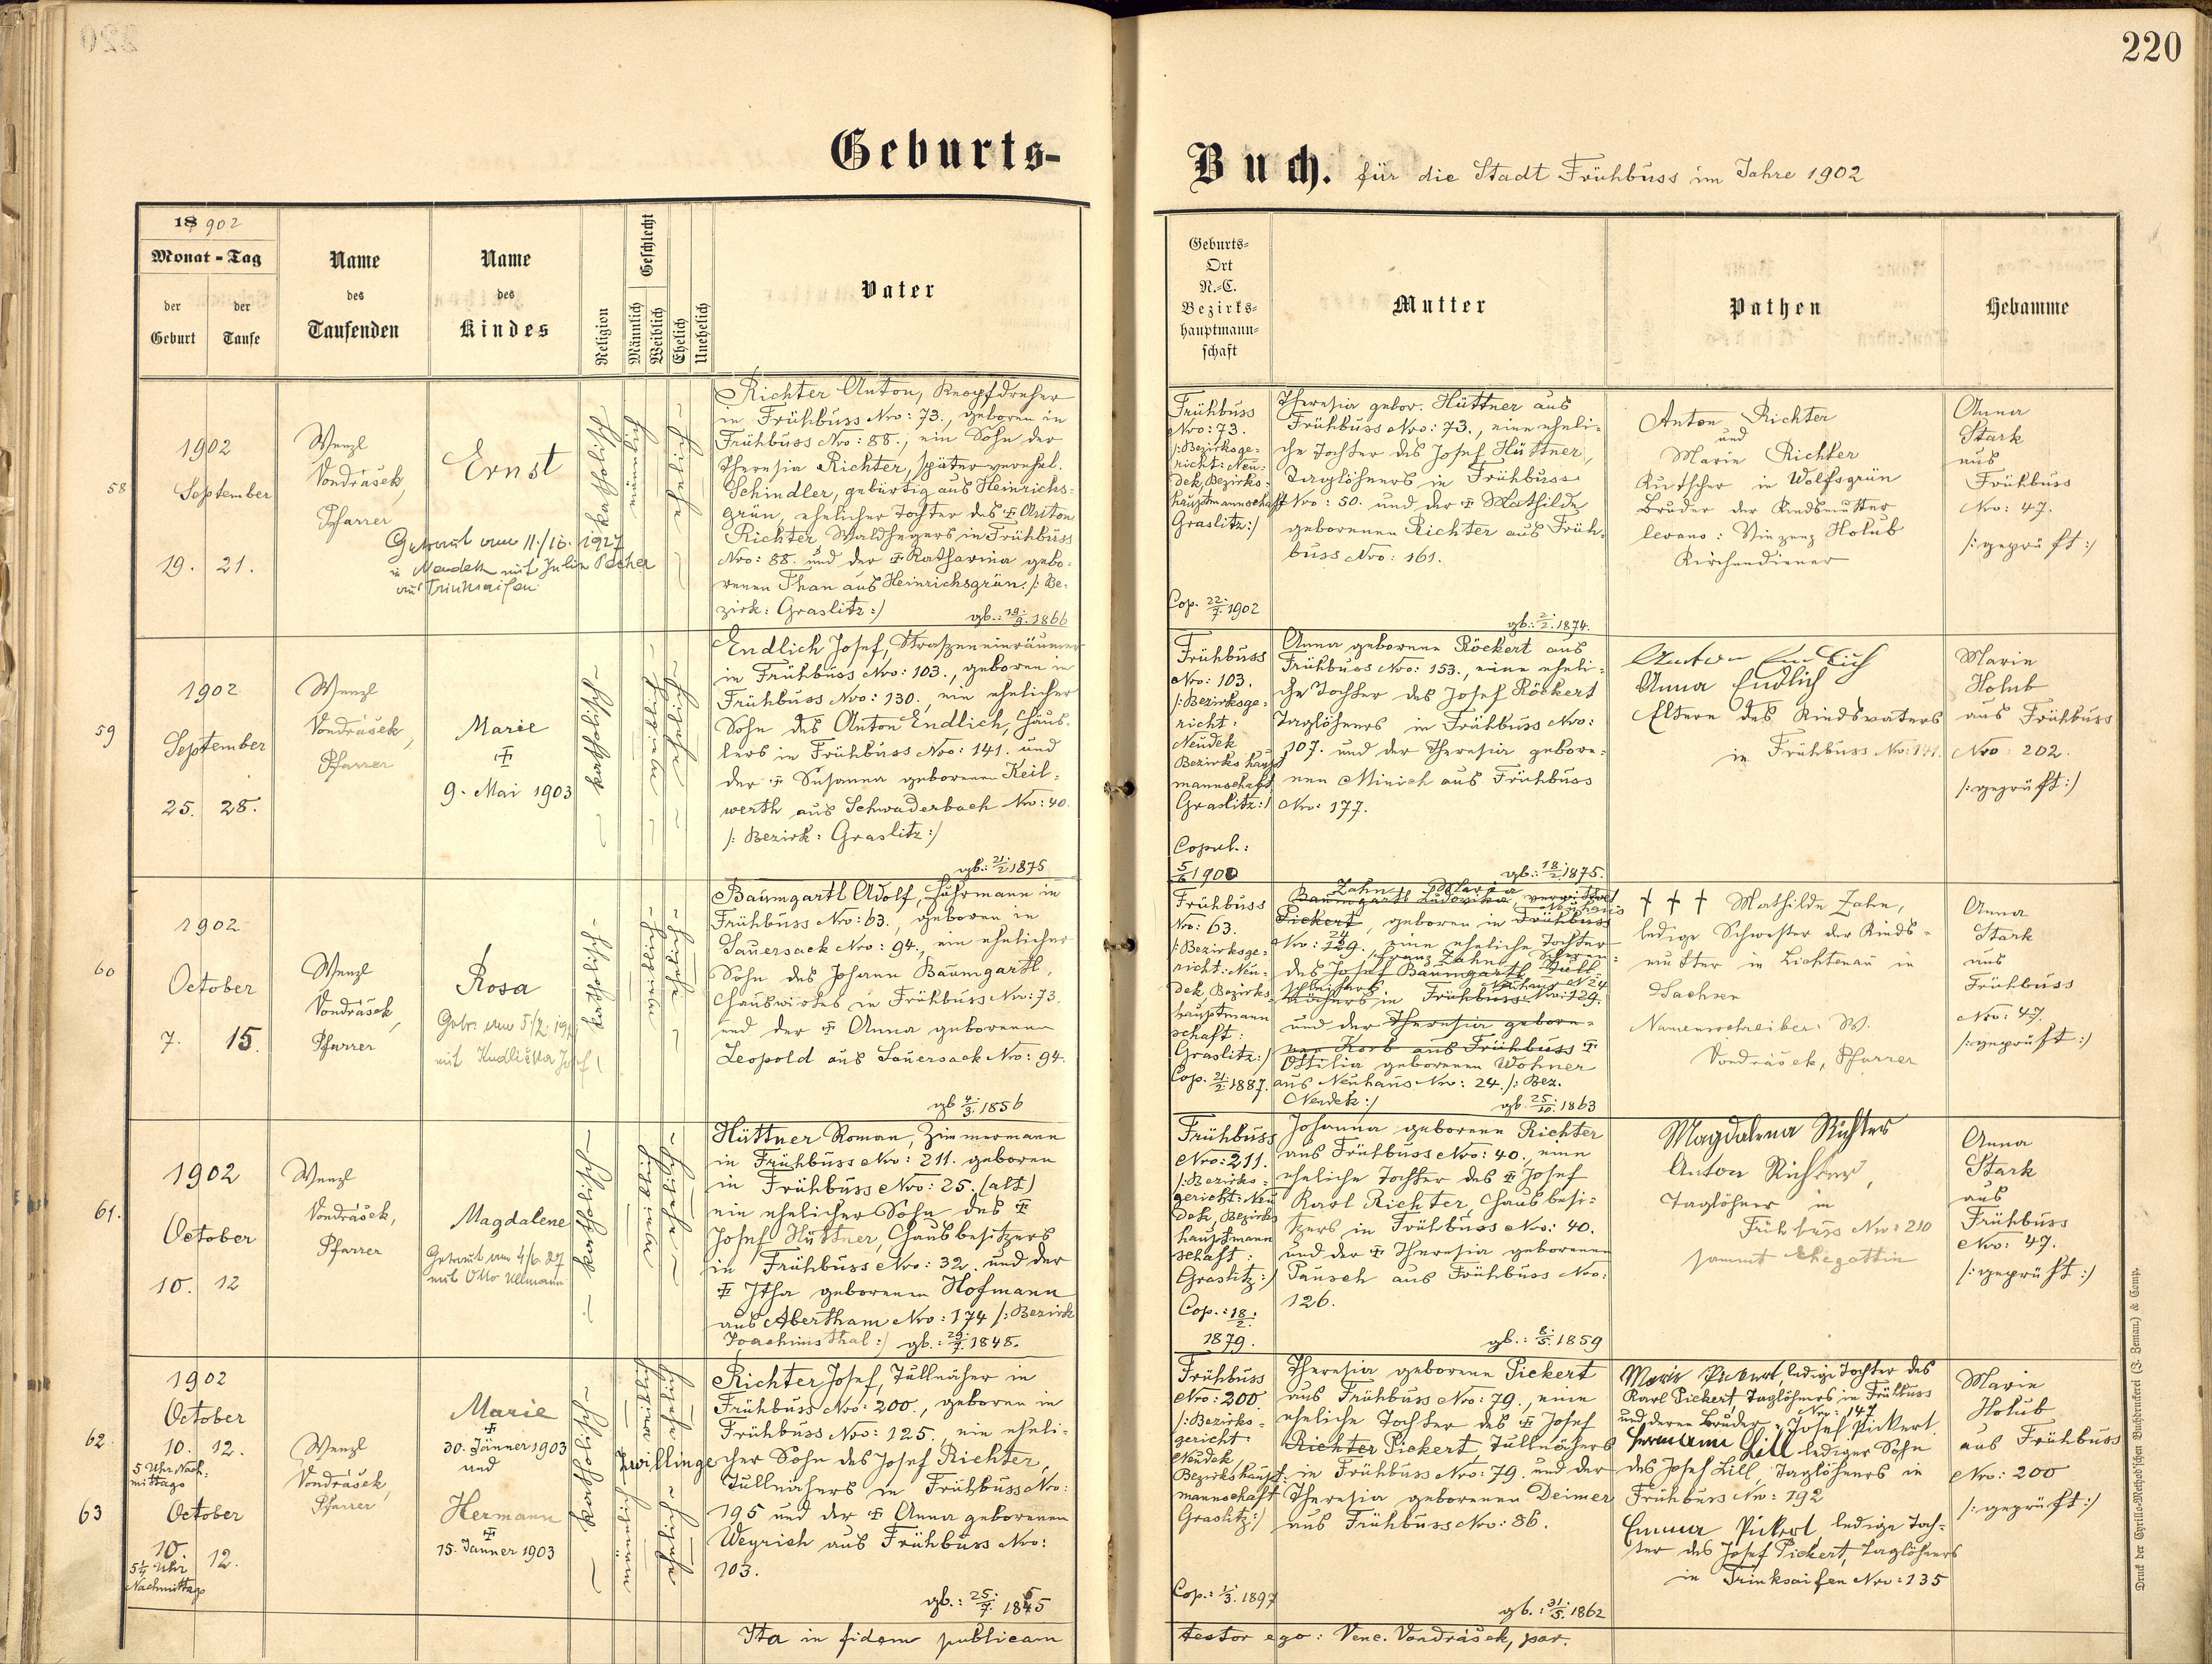 220
Geburts-
Buch. für die Stadt Frühbuss im Jahre 1902
18 902
Monat - Tag
der Geburt
der Taufe
Name des Taufenden
Name des Kindes
Religion
Geschlecht
Männlich
Weiblich
Ehelich
Unehelich
Vater
Geburts-
Ort
N.-C.
Bezirks-
hauptmann-
schaft
Mutter
Pathen
Hebamme
58
1902
September
19. 21.
Wenzl
Vondrášek,
Pfarrer
Ernst
Getraut am 11./10. 1927
in Neudek mit Julie Pecher
aus Trinksaifen
Richter Anton, Knopfdreher
in Frühbuss Nro: 73., geboren in
Frühbuss Nro: 88., ein Sohn der
Theresia Richter, später verehel.
Schindler, gebürtig aus Heinrichs-
grün, ehelicher Tochter des ‡ Anton
Richter Waldhegers in Frühbuss
Nro: 88. und der ‡ Katharina gebo-
renen Than aus Heinrichsgrün. /: Be-
zirk: Graslitz :/
gb.: 19./9. 1866
Frühbuss
Nro: 73.
/: Bezirksge-
richt: Neu-
dek, Bezirks-
hauptmannschaft
Graslitz :/
Cop. 22./7. 1902
Theresia gebor. Hüttner aus
Frühbuss Nro: 73., eine eheli-
che Tochter des Josef Hüttner,
Taglöhners in Frühbuss
Nro: 50. und der ‡ Mathilde
geborenen Richter aus Früh-
buss Nro: 161.
gb.: 2./2. 1874.
Anton Richter
und
Marie Richter
Kutscher in Wolfsgrün
Bruder der Kindsmutter
levans: Vinzenz Holub
Kirchendiener
Anna
Stark
aus
Frühbuss
Nro: 47.
/: geprüft :/
59
1902
September
25. 28.
Wenzl
Vondrášek,
Pfarrer
Marie
‡
9. Mai 1903
Endlich Josef, Straszeneinräumer
in Frühbuss Nro: 103., geboren in
Frühbuss Nro: 130., ein ehelicher
Sohn des Anton Endlich, Häus-
lers in Frühbuss Nro: 141. und
der ‡ Susanna geborenen Keil-
werth aus Schwaderbach Nro: 40.
/: Bezirk: Graslitz :/
gb.: 21./2. 1875
Frühbuss
Nro: 103.
/: Bezirksge-
richt:
Neudek
Bezirkshaupt
mannschaft
Graslitz :/
Copul.:
5/6 1900
Anna geborene Röckert aus
Frühbuss Nro: 153., eine eheli-
che Tochter des Josef Röckert
Taglöhners in Frühbuss Nro:
107. und der Theresia gebore-
nen Minich aus Frühbuss
Nro: 177.
gb.: 18./2. 1875.
Anton Endlich
Anna Endlich
Eltern des Kindsvaters
in Frühbuss Nro: 141.
Marie
Holub
aus Frühbuss
Nro: 202.
/: geprüft :/
60
1902
October
7. 15.
Wenzl
Vondrášek,
Pfarrer
Rosa
Baumgartl Adolf, Fuhrmann in
Frühbuss Nro: 63., geboren in
Sauersack Nro: 94., ein ehelicher
Sohn des Johann Baumgartl,
Hauswirtes in Frühbuss Nro: 73.
und der ‡ Anna geborenen
Leopold aus Sauersack Nro: 94.
gb 4./3. 1856
Frühbuss
Nro: 63.
/: Bezirksge-
richt: Neu-
dek, Bezirks-
hauptmann
schaft:
Graslitz :/
Cop. 21./2. 1887.
Zahn Maria
Baumgartl Ludovika,
Pickert, geboren in Frühbuss
Nro: 129., eine eheliche Tochter
Franz Zahn
des Josef Baumgartl
in Frühbuss Nro: 129.
und der Theresia gebore-
nen Korb aus Frühbuss ‡
Ottilia geborenen Wohner
aus Neuhaus Nro: 24. /: Bez.
Neudek :/
gb. 25./10. 1863
† † † Mathilde Zahn,
ledige Schwester der Kinds-
mutter in Lichtenau in
Sachsen
Namenschreiber: W.
Vondrášek, Pfarrer
Anna
Stark
aus
Frühbuss
Nro: 47.
/: geprüft :/
61.
1902
October
10. 12
Wenzl
Vondrášek,
Pfarrer
Magdalene
Getraut am 4/6. 27
mit Otto Ullmann
Hüttner Roman, Zimmermann
in Frühbuss Nro: 211. geboren
in Frühbuss Nro: 25. (alt)
ein ehelicher Sohn des ‡
Josef Hüttner, Hausbesitzers
in Frühbuss Nro: 32. und der
‡ Itha geborenen Hofmann
aus Abertham Nro: 174 /: Bezirk
Joachimsthal :/ gb.: 29./7. 1848.
Frühbuss
Nro: 211.
/: Bezirks-
gericht: Neu
dek, Bezirks
hauptmann
schaft:
Graslitz :/
Cop.: 18./2.
1879.
Johanna geborene Richter
aus Frühbuss Nro: 40., eine
eheliche Tochter des ‡ Josef
Karl Richter, Hausbesi-
tzers in Frühbuss Nro: 40.
und der ‡ Theresia geborenen
Pausch aus Frühbuss Nro:
126.
gb.: 8./5. 1859
Magdalena Richter
Anton Richter,
Taglöhner in
Frühbuss Nro: 210
sammt Ehegattin
Anna
Stark
aus
Frühbuss
Nro: 47.
/: geprüft :/
62.
1902
October
10. 12.
5 Uhr Nach-
mittags
63
October
10. 12.
5¼ Uhr
Nachmittags
Wenzl
Vondrášek,
Pfarrer
Marie
‡
30. Jänner 1903
und
Hermann
‡
15. Jänner 1903
Zwillinge
Richter Josef, Tüllnäher in
Frühbuss Nro: 200., geboren in
Frühbuss Nro: 125., ein eheli-
cher Sohn des Josef Richter,
Tüllnähers in Frühbuss Nro:
195 und der ‡ Anna geborenen
Weyrich aus Frühbuss Nro:
103.
gb.: 25./7. 1865
Frühbuss
Nro: 200.
/: Bezirks-
gericht:
Neudek,
Bezirkshaupt-
mannschaft
Graslitz :/
Cop.: 1./3. 1897
Theresia geborene Pickert
aus Frühbuss Nro: 79., eine
eheliche Tochter des ‡ Josef
Richter Pickert, Tüllnähers
in Frühbuss Nro: 79. und der
Theresia geborenen Deimer
aus Frühbuss Nro: 86.
gb.: 31./5. 1862
Marie Pickert, ledige Tochter des
Karl Pickert, Taglöhners in Frühbuss
Nro: 147
und deren Bruder: Josef Pickert.
Hermann Lill lediger Sohn
des Josef Lill, Taglöhners in
Frühbuss Nro: 192
Emma Pickert, ledige Toch-
ter des Josef Pickert, Taglöhners
in Trinksaifen Nro: 135
Marie
Holub
aus Frühbuss
Nro: 200
/: geprüft :/
Ita in fidem publicam
testor ego: Venc. Vondrášek, par.
Druck der Cyrillo-Method'schen Buchdruckerei (J. Zeman) & Comp.